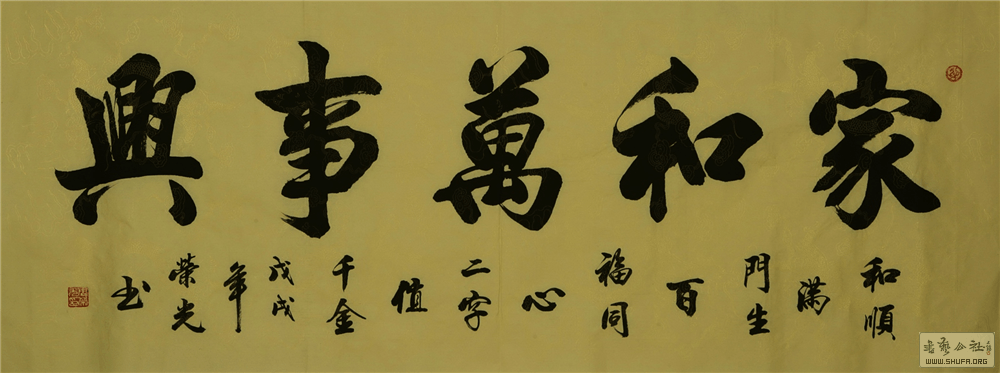 家和萬事興
和順滿門生百福同心二字值千金戊戌年榮光书
书艺公社
WWW.SHUFA.ORG